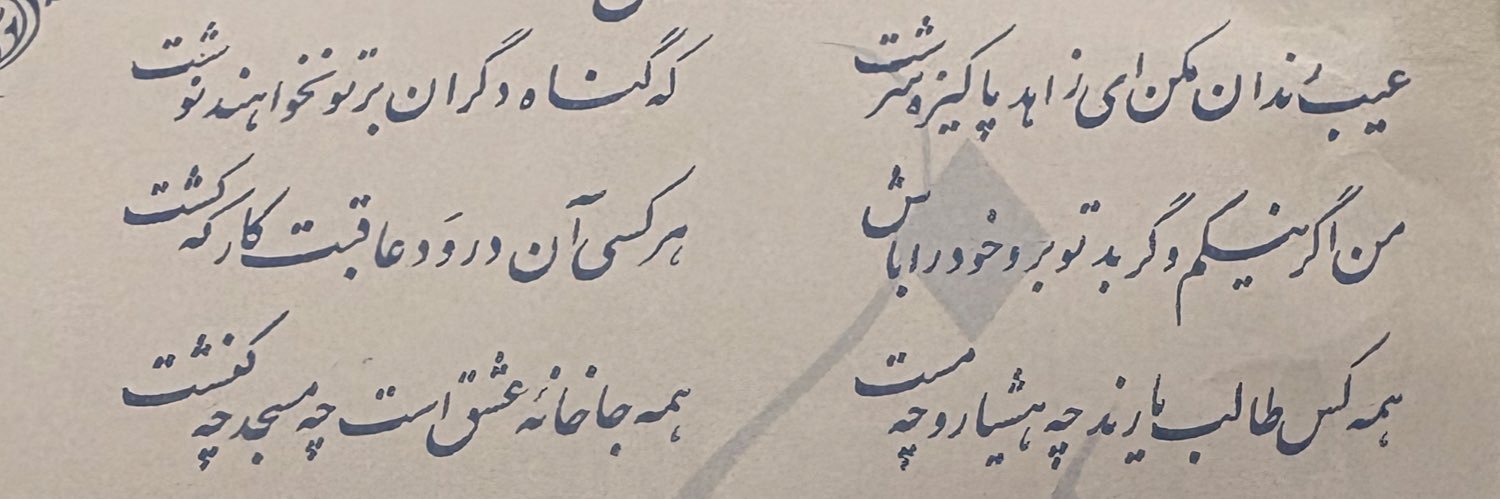 عیب رندان مکن ای زاهد پاکیزه سرشت
که گناه دگران بر تو نخواهند نوشت
من اگر نیکم وگر بد تو برو خود را باش
هر کسی آن دروَد عاقبت کار که کشت
همه کس طالب یارند چه هشیار و چه مست
همه جا خانهٔ عشق است چه مسجد چه کنشت